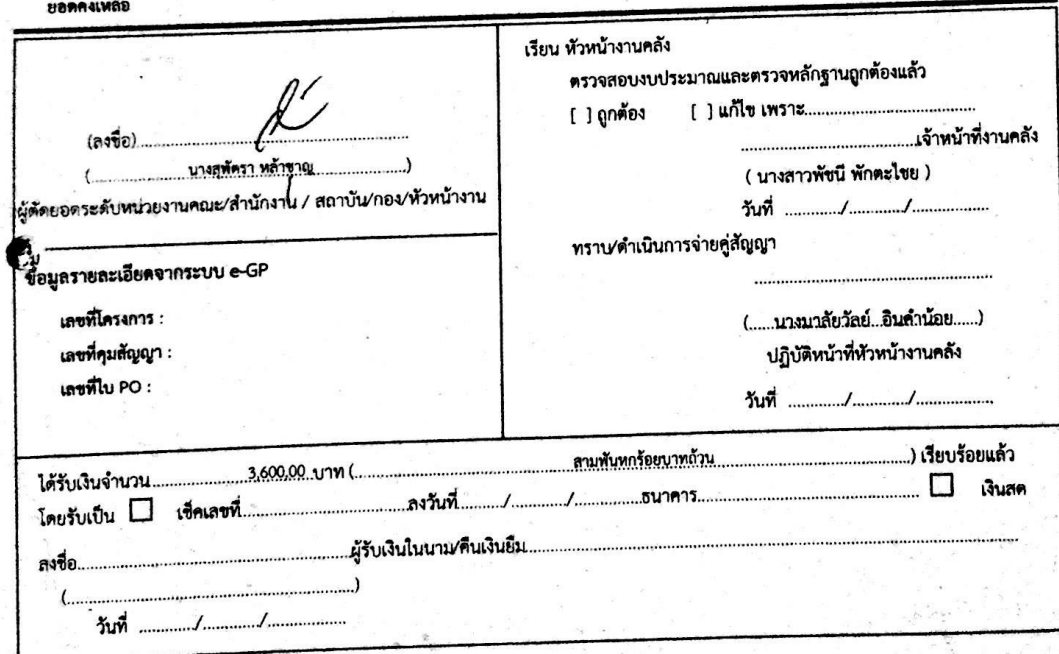 ยอดคงเหลือ
(ลงชื่อ)
(นางสุพัตรา หล้าชาญ)
ผู้ตัดยอดระดับหน่วยงานคณะ/สำนักงาน / สถาบัน/กอง/หัวหน้างาน
ข้อมูลรายละเอียดจากระบบ e-GP
เลขที่โครงการ :
เลขที่คุมสัญญา :
เลขที่ใบ PO :
เรียน หัวหน้างานคลัง
ตรวจสอบงบประมาณและตรวจหลักฐานถูกต้องแล้ว
[ ] ถูกต้อง [ ] แก้ไข เพราะ....................
....................เจ้าหน้าที่งานคลัง
( นางสาวพัชนี พักตะไชย )
วันที่ ............/............/................
ทราบ/ดำเนินการจ่ายคู่สัญญา
(......นางมาลัยวัลย์...อินคำน้อย......)
ปฏิบัติหน้าที่หัวหน้างานคลัง
วันที่ ............/............/................
ได้รับเงินจำนวน....................3,600.00 บาท (....................สามพันหกร้อยบาทถ้วน....................) เรียบร้อยแล้ว
โดยรับเป็น ☐ เช็คเลขที่....................ลงวันที่........../............/............ธนาคาร.................... ☐ เงินสด
ลงชื่อ....................ผู้รับเงินในนาม/คืนเงินยืม....................
(....................)
วันที่ ............/............/................